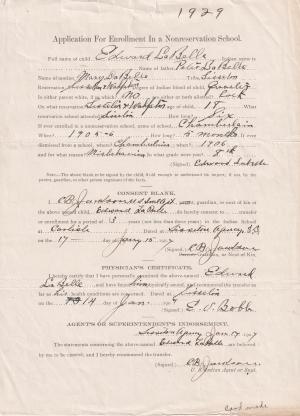 1929
Application For Enrollment in a Nonreservation School.
Full name of child, Edward LaBelle Indian name is
Name of father, Peter LaBelle
Name of mother, Mary LaBelle Tribe, Sisseton
Reservation, Sisseton Wahpeton Degree of Indian blood of child,
Is either parent white, if so, which? No
On what reservation Sisseton Wahpeton age of child, 18 What
reservation school attended Sisseton How long? Six
If ever enrolled in a nonreservation school, name of school, Chamberlain
When? 1905-6 How long? 5 months If ever
dismissed from a school, where? Chamberlain when? 1906
and for what reason Misbehaving in what grade were you? 5th
(Signed) Edward LaBelle
NOTE.—The above blank to be signed by the child, if old enough to understand its import; if not, by the
parent, guardian, or other proper signature of the facts.
CONSENT BLANK.
I, guardian, or next of kin of
the above child, Edward LaBelle do hereby consent to transfer
or enrollment for a period of 3 years (not less than three years) in the Indian School
at Carlisle Dated at Sisseton Agency S.D.
on the 17 day Jany 15 1907
(Signed)
Guardian, or Next of Kin.
PHYSICIAN'S CERTIFICATE.
I hereby certify that I have personally examined the above-named Edward
LaBelle and have found him physically sound, and recommend transfer so far
as his health conditions are concerned. Dated at Sisseton
on the 14 day of Jan. 7
(Signed)
AGENT'S OR SUPERINTENDENT'S INDORSEMENT.
Sisseton Agency Jan 17 1907
The statements concerning the above-named Edward LaBelle are believed
by me to be correct, and I hereby recommend the transfer.
(Signed)
U. S. Indian Agent or Supt.
Card made